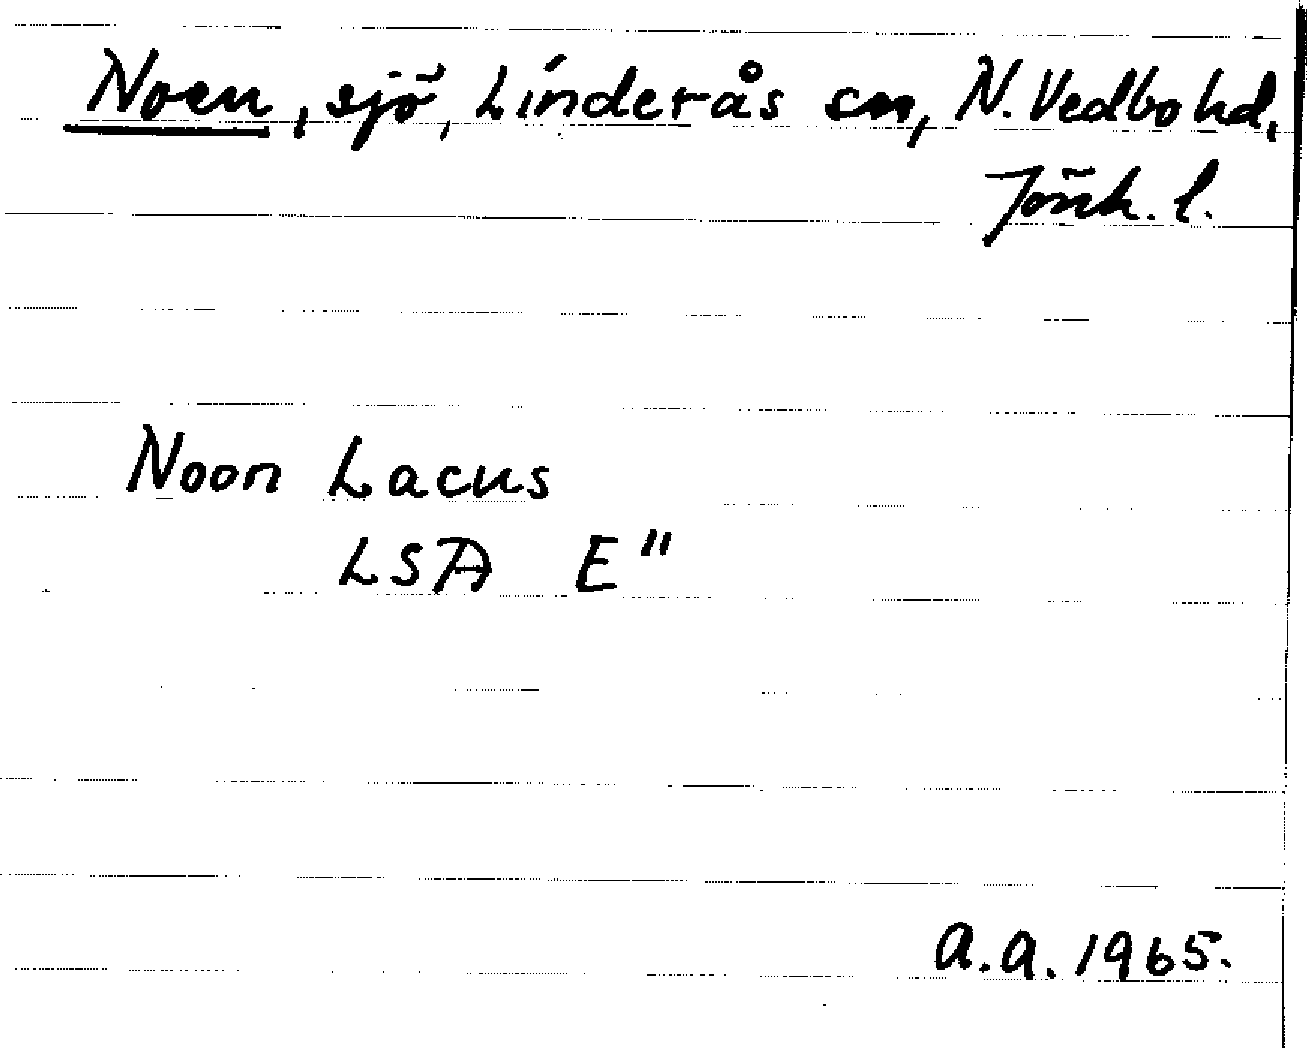 Noen, sjö, Linderås sn, N. Vedbo hd,
Jönk. l.
Noon Lacus
LSA E"
a.a. 1965.